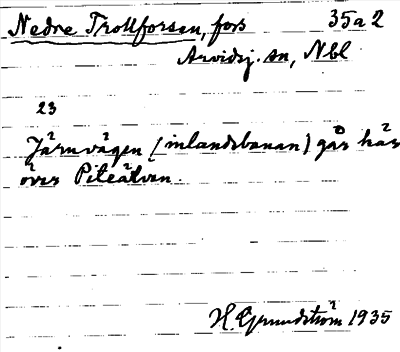 Nedre Trollforsen, fors 35a2
Arvidsj. sn, Nbl
23
Järnvägen (inlandsbanan) går här
över Piteälven.
H. Grundström 1935